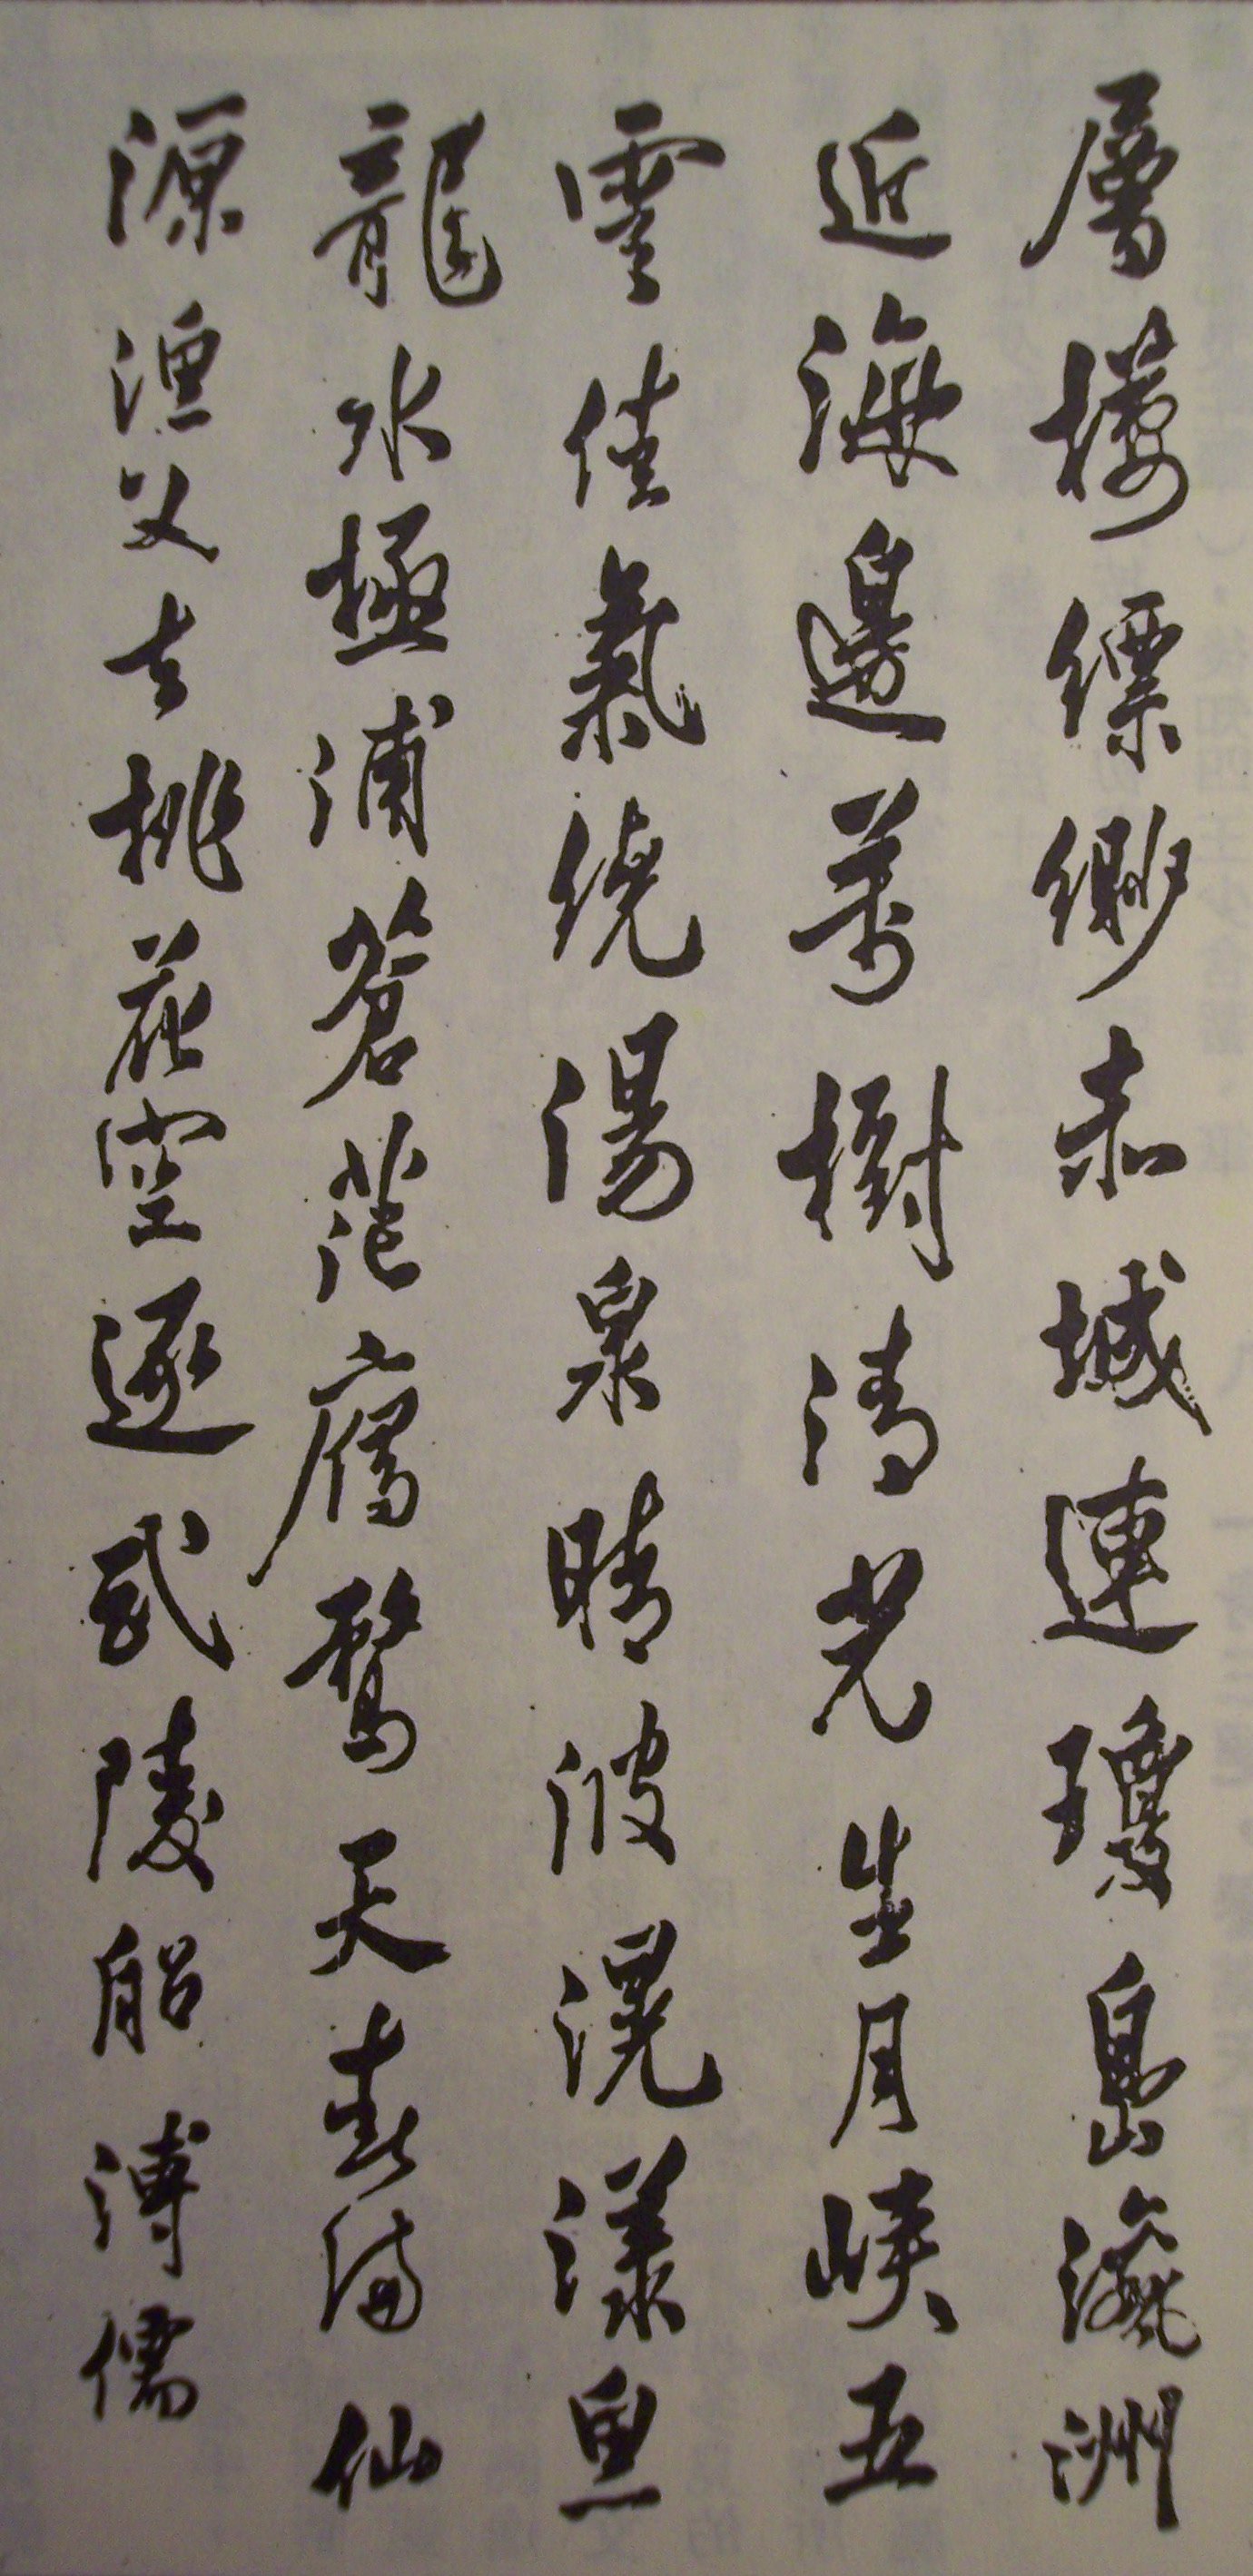 層樓縹緲赤城連瓊島瀛洲
近海邊萬樹清光生月峽五
雲佳氣繞湯泉晴波滉漾魚
龍水極浦蒼茫鴈鶩天春滿仙
源漁父去桃花空逐武陵船溥儒